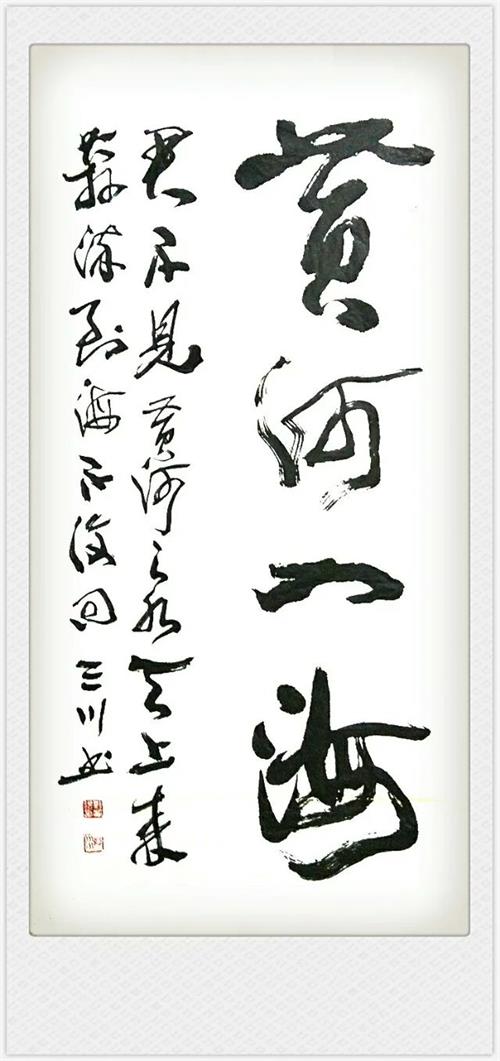 黄河入海
君不見黄河之水天上来
奔流到海不復回 三川书